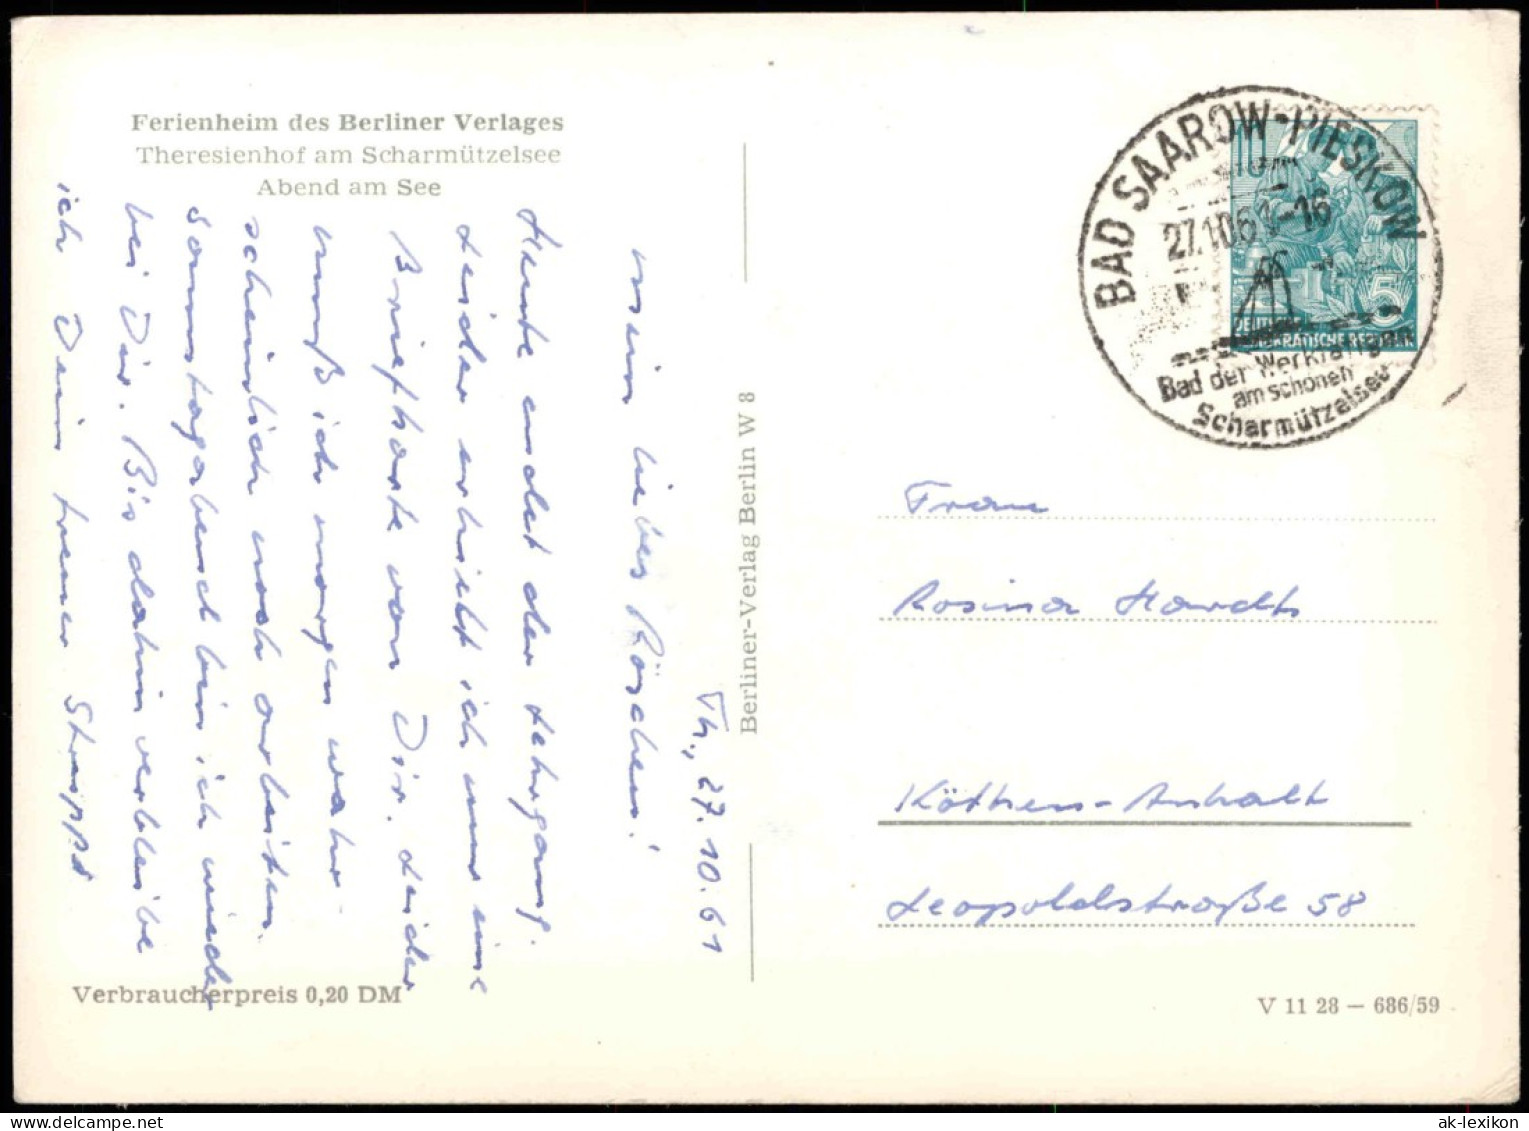 Ferienheim des Berliner Verlages
Theresienhof am Scharmützelsee
Abend am See
Th., 27.10.61
mein liebes Röschen!
Heute endet der Lehrgang.
Leider erhielt ich nur eine
Briefkarte von Dir. Leider
muß ich morgen wahr-
scheinlich noch arbeiten.
Sonnabend bin ich wieder
bei Dir. Bis dahin verbleibe
ich Dein treuer
Verbraucherpreis 0,20 DM
Berliner-Verlag Berlin W 8
BAD SAAROW-PIESKOW
27.10.61-16
Bad der Werktätigen
am schönen
Scharmützelsee
10
5
DEUTSCHE
DEMOKRATISCHE REPUBLIK
Frau
Rosina
Köthen-Anhalt
Leopoldstraße 58
V 11 28 — 686/59
ak-lexikon